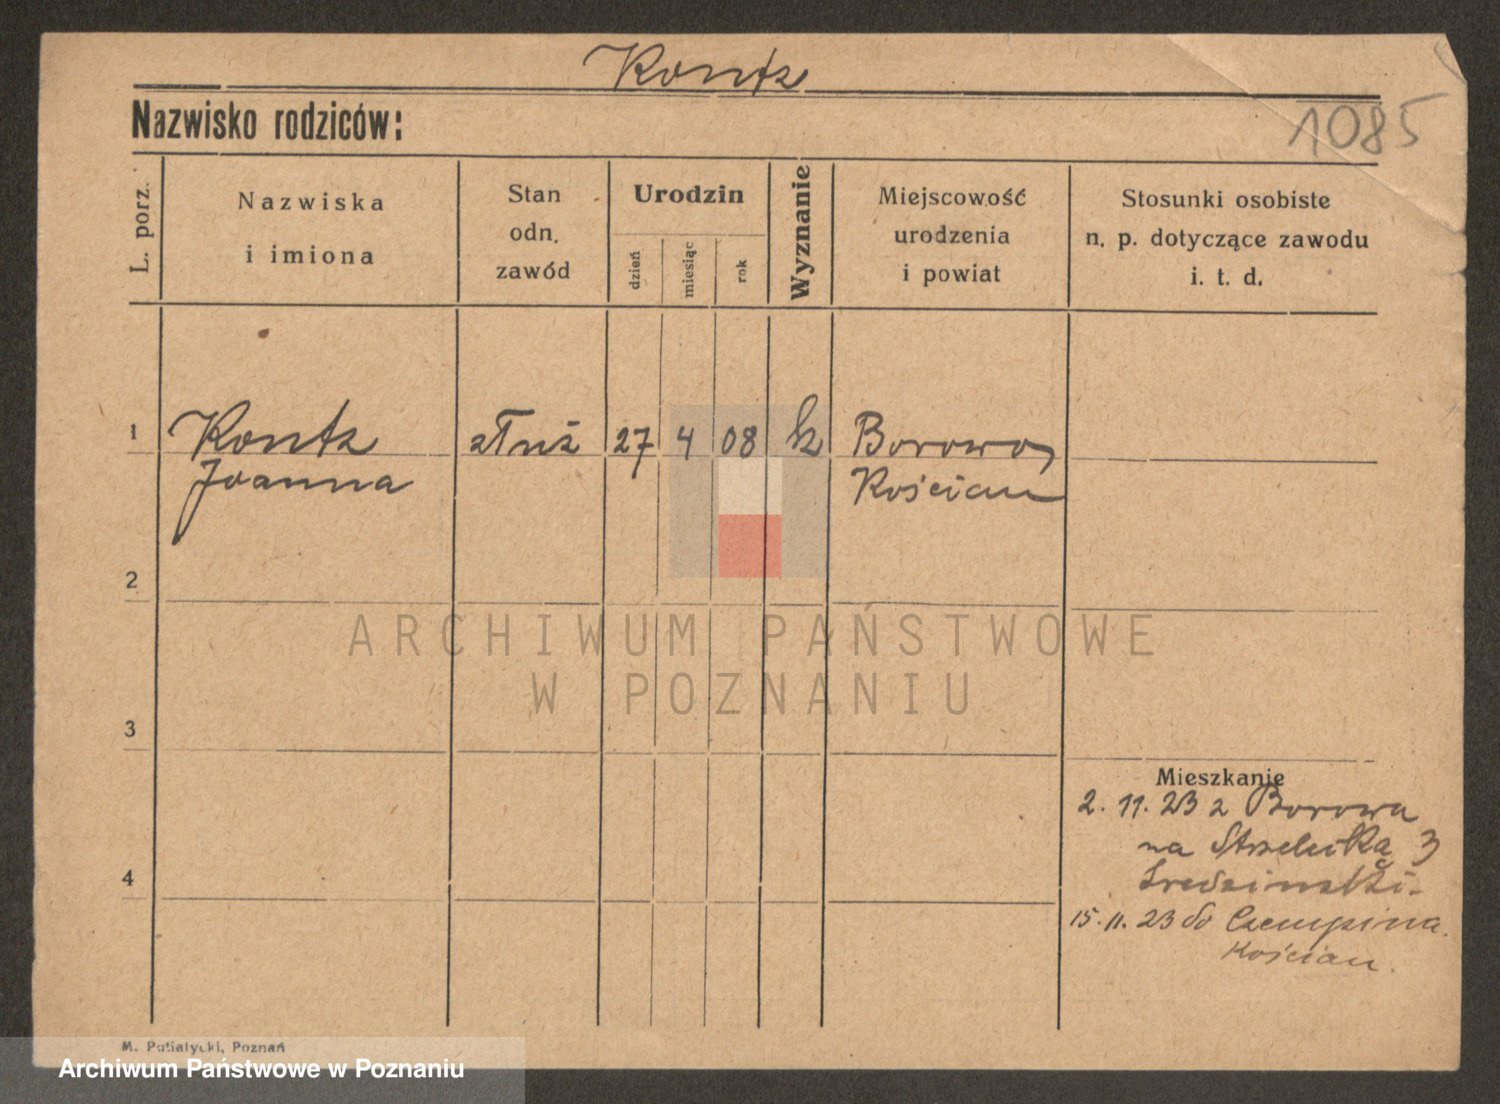 Kontz
Nazwisko rodziców:
1085
L. porz.
Nazwiska
i imiona
Stan
odn.
zawód
Urodzin
dzień
miesiąc
rok
Wyznanie
Miejscowość
urodzenia
i powiat
Stosunki osobiste
n. p. dotyczące zawodu
i. t. d.
1 Kontz służ 27 4 08 k Borowo,
Joanna Kościan
2
ARCHIWUM PAŃSTWOWE
W POZNANIU
3
Mieszkanie
2. 11. 23 z Borowa
na Strzelecką 3
15. 11. 23 do Czempinia.
Kościan.
4
M. Putiatycki, Poznań
Archiwum Państwowe w Poznaniu